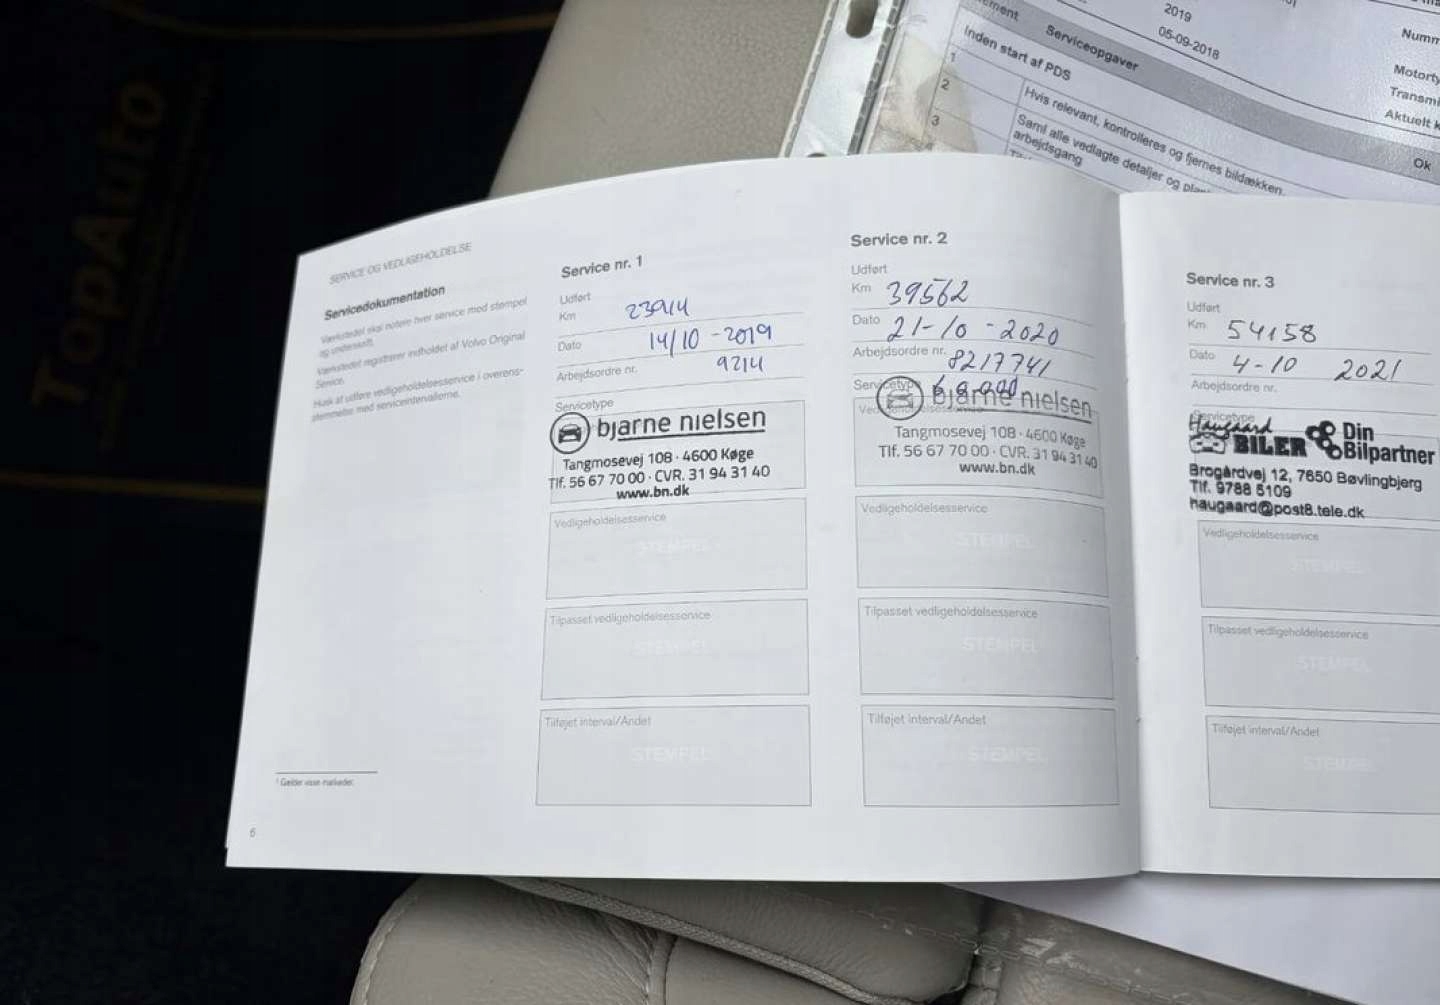 TopAuto
2019
05-09-2018
Serviceopgaver
Inden start af PDS
1
2
Hvis relevant, kontrolleres og fjernes bildækken.
3
Saml alle vedlagte detaljer og
arbejdsgang
Ok
SERVICE OG VEDLIGEHOLDELSE
Servicedokumentation
Værkstedet skal notere hver service med stempel
og underskrift.
Værkstedet registrerer indholdet af Volvo Original
Service.
Husk at udføre vedligeholdelsesservice i overens-
stemmelse med serviceintervallerne.
1 Gælder visse markeder.
6
Service nr. 1
Udført
Km 23914
Dato 14/10 - 2019
Arbejdsordre nr. 9214
Servicetype
bjarne nielsen
Tangmosevej 108 · 4600 Køge
Tlf. 56 67 70 00 · CVR. 31 94 31 40
www.bn.dk
Vedligeholdelsesservice
STEMPEL
Tilpasset vedligeholdelsesservice
STEMPEL
Tilføjet interval/Andet
STEMPEL
Service nr. 2
Udført
Km 39562
Dato 21-10-2020
Arbejdsordre nr. 8217741
Servicetype
bjarne nielsen
Tangmosevej 108 · 4600 Køge
Tlf. 56 67 70 00 · CVR. 31 94 31 40
www.bn.dk
Vedligeholdelsesservice
STEMPEL
Tilpasset vedligeholdelsesservice
STEMPEL
Tilføjet interval/Andet
STEMPEL
Service nr. 3
Udført
Km 54158
Dato 4-10 2021
Arbejdsordre nr.
Servicetype
Haugaard
BILER Din Bilpartner
Brogårdvej 12, 7650 Bøvlingbjerg
Tlf. 9788 5109
haugaard@post8.tele.dk
Vedligeholdelsesservice
STEMPEL
Tilpasset vedligeholdelsesservice
STEMPEL
Tilføjet interval/Andet
STEMPEL